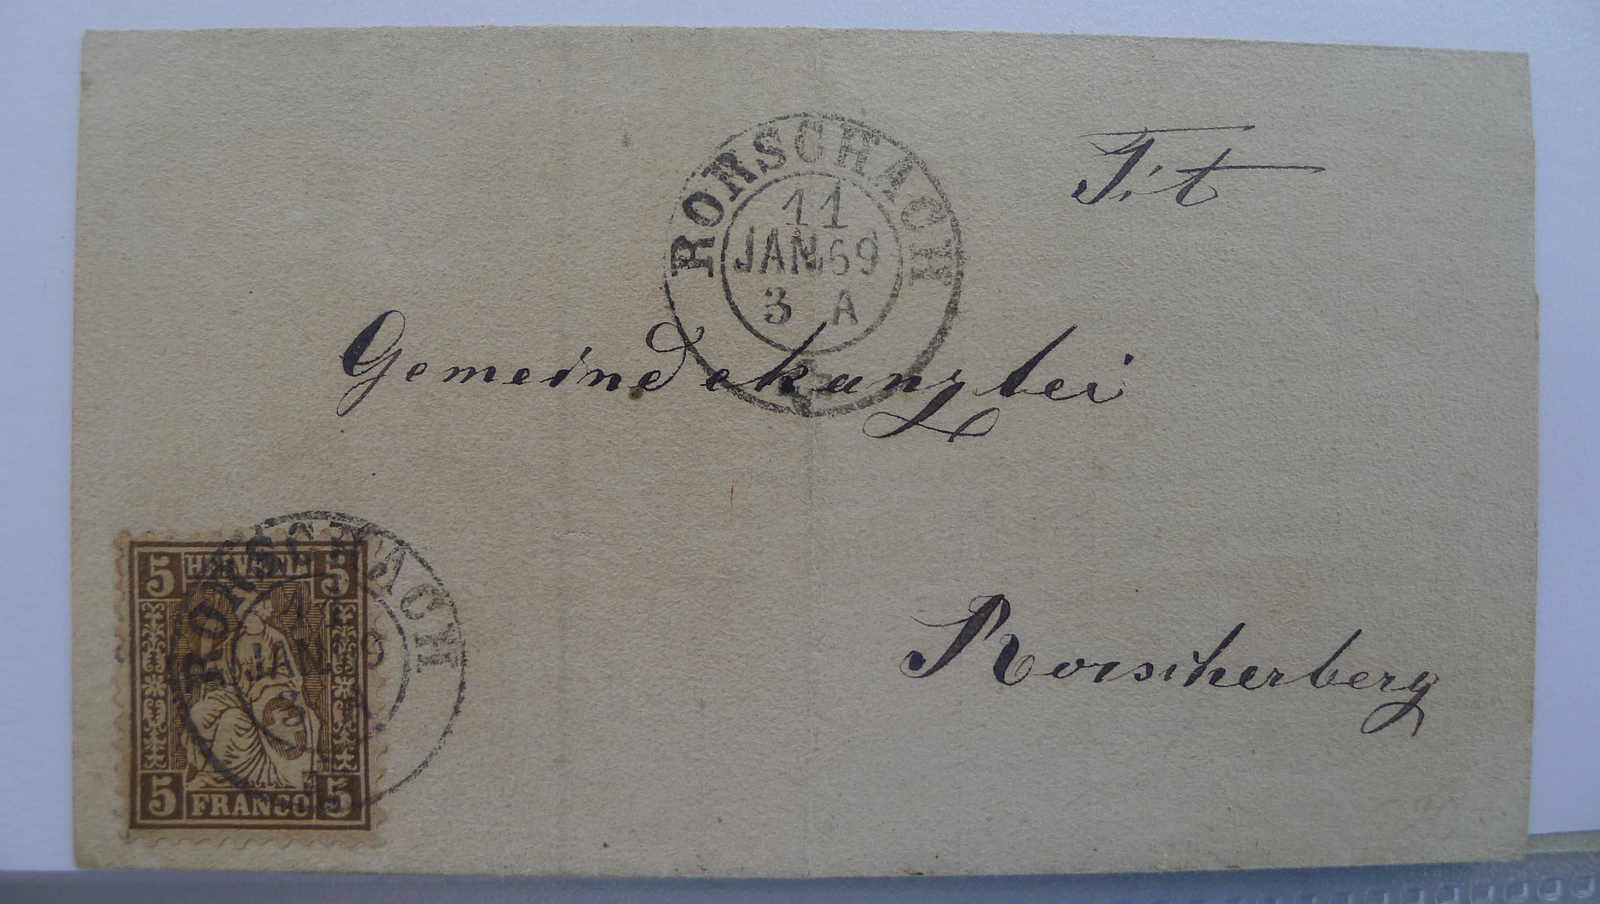 RORSCHACH
11
JAN. 69
3 A
Tit
Gemeindekanzlei
Rorscherberg
5 HELVETIA 5
RORSCHACH
11
JAN. 69
5 FRANCO 5